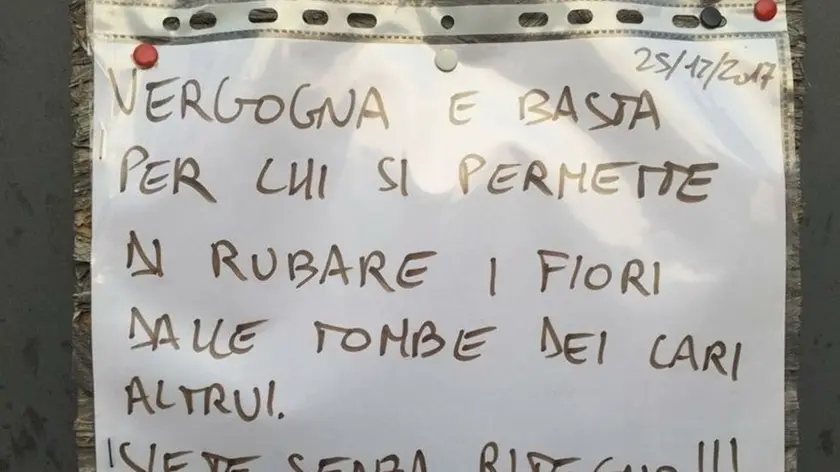 25/12/2017
VERGOGNA E BASTA
PER CHI SI PERMETTE
DI RUBARE I FIORI
DALLE TOMBE DEI CARI
ALTRUI.
SIETE SENZA RITEGNO!!!